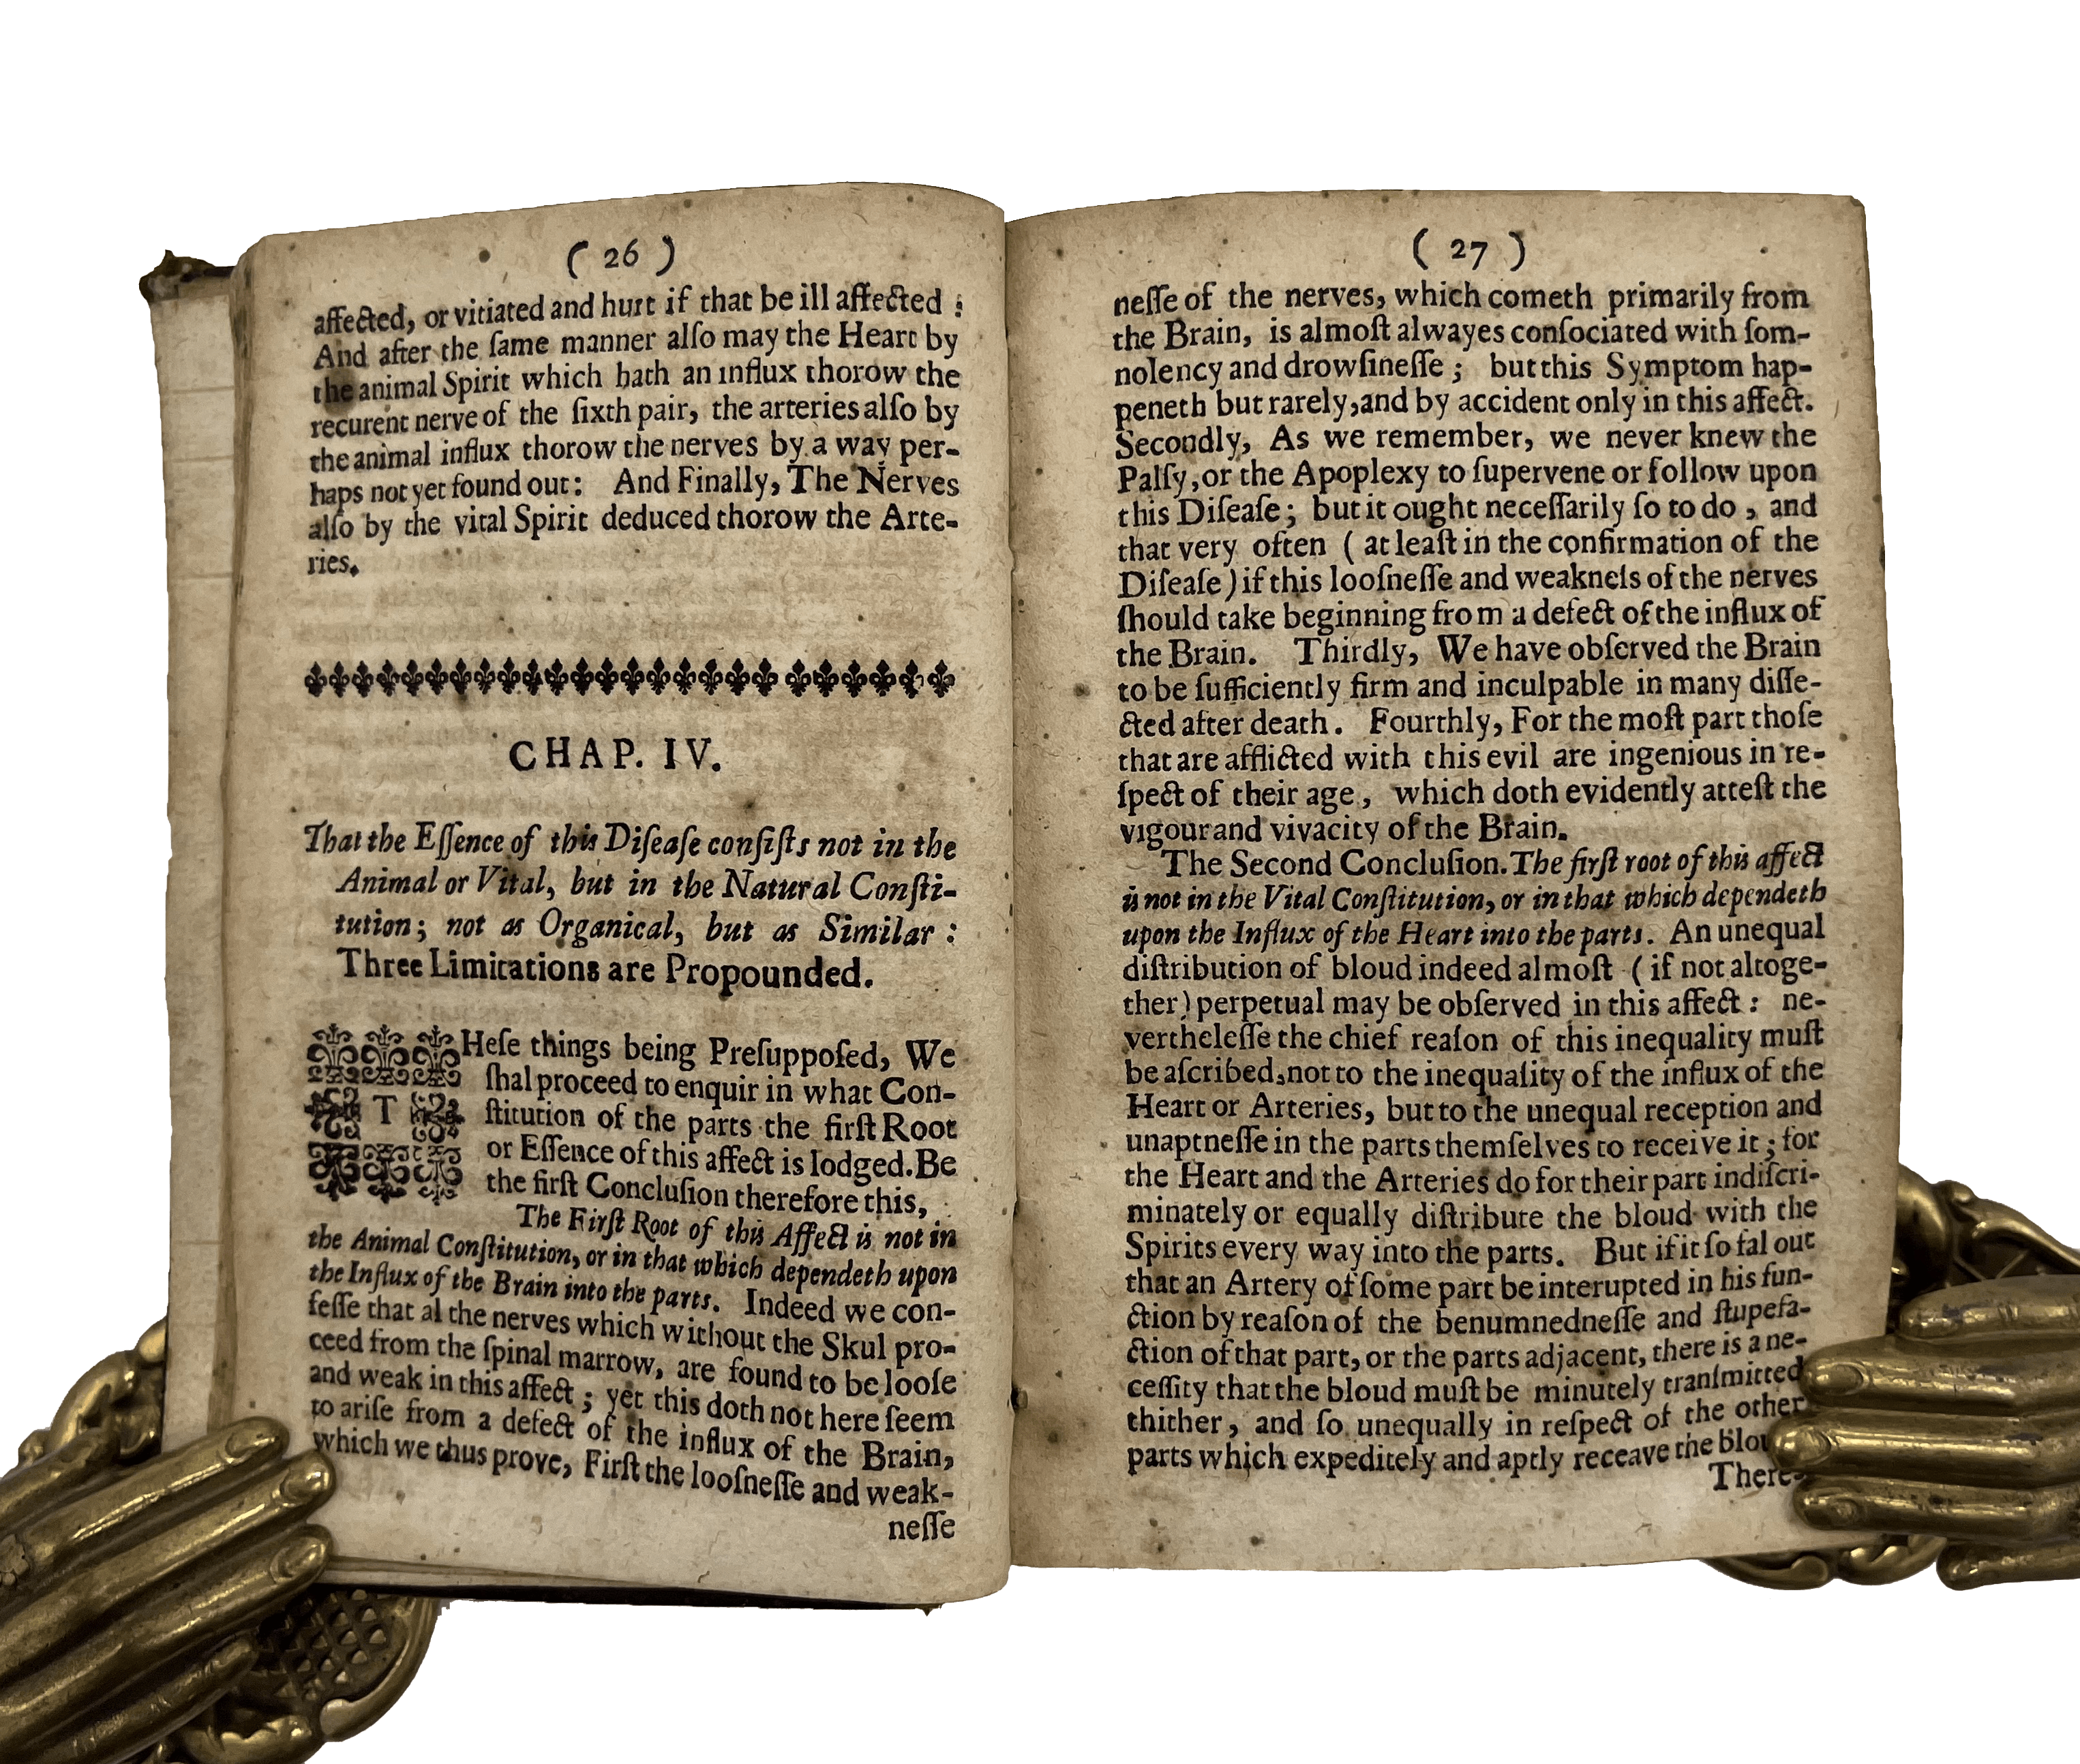 ( 26 )
affected, or vitiated and hurt if that be ill affected :
And after the ſame manner alſo may the Heart by
the animal Spirit which hath an influx thorow the
recurent nerve of the ſixth pair, the arteries alſo by
the animal influx thorow the nerves by a way per-
haps not yet found out: And Finally, The Nerves
alſo by the vital Spirit deduced thorow the Arte-
ries.
CHAP. IV.
That the Eſſence of this Diſeaſe conſiſts not in the
Animal or Vital, but in the Natural Conſti-
tution; not as Organical, but as Similar :
Three Limitations are Propounded.
THeſe things being Preſuppoſed, We
ſhal proceed to enquir in what Con-
ſtitution of the parts the firſt Root
or Eſſence of this affect is lodged. Be
the firſt Concluſion therefore this,
The Firſt Root of this Affect is not in
the Animal Conſtitution, or in that which dependeth upon
the Influx of the Brain into the parts. Indeed we con-
feſſe that al the nerves which without the Skul pro-
ceed from the ſpinal marrow, are found to be looſe
and weak in this affect ; yet this doth not here ſeem
to ariſe from a defect of the influx of the Brain,
which we thus prove, Firſt the looſneſſe and weak-
neſſe
( 27 )
neſſe of the nerves, which cometh primarily from
the Brain, is almoſt alwayes conſociated with ſom-
nolency and drowſineſſe ; but this Symptom hap-
peneth but rarely, and by accident only in this affect.
Secondly, As we remember, we never knew the
Palſy, or the Apoplexy to ſupervene or follow upon
this Diſeaſe ; but it ought neceſſarily ſo to do , and
that very often ( at leaſt in the confirmation of the
Diſeaſe ) if this looſneſſe and weakneſs of the nerves
ſhould take beginning from a defect of the influx of
the Brain. Thirdly, We have obſerved the Brain
to be ſufficiently firm and inculpable in many diſſe-
cted after death. Fourthly, For the moſt part thoſe
that are afflicted with this evil are ingenious in re-
ſpect of their age , which doth evidently atteſt the
vigour and vivacity of the Brain.
The Second Concluſion. The firſt root of this affect
is not in the Vital Conſtitution, or in that which dependeth
upon the Influx of the Heart into the parts. An unequal
diſtribution of bloud indeed almoſt ( if not altoge-
ther ) perpetual may be obſerved in this affect : ne-
vertheleſſe the chief reaſon of this inequality muſt
be aſcribed, not to the inequality of the influx of the
Heart or Arteries, but to the unequal reception and
unaptneſſe in the parts themſelves to receive it ; for
the Heart and the Arteries do for their part indiſcri-
minately or equally diſtribute the bloud with the
Spirits every way into the parts. But if it ſo fal out
that an Artery of ſome part be interupted in his fun-
ction by reaſon of the benumnedneſſe and ſtupefa-
ction of that part, or the parts adjacent, there is a ne-
ceſſity that the bloud muſt be minutely tranſmitted
thither , and ſo unequally in reſpect of the other
parts which expeditely and aptly receave the
There-